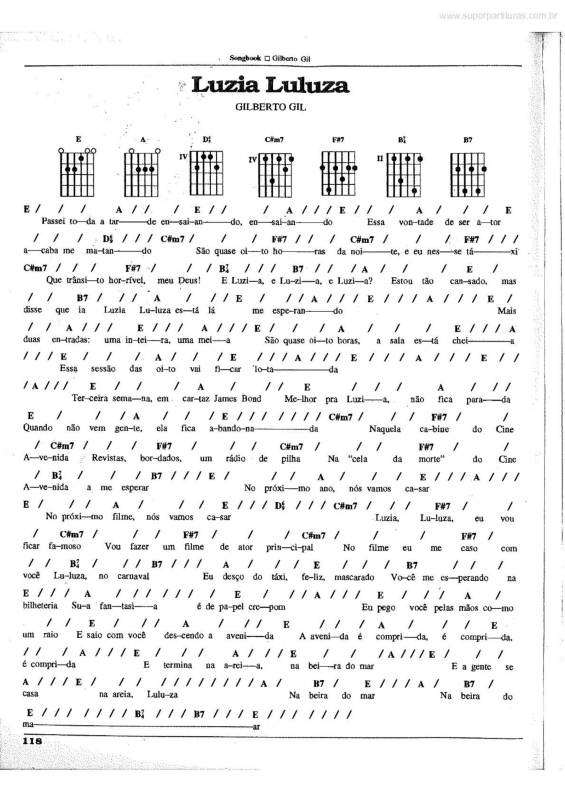 www.superpartituras.com.br
Songbook □ Gilberto Gil
Luzia Luluza
GILBERTO GIL
E A D⁷₄ C#m7 F#7 B⁷₄ B7
IV IV II
E / / / A / / / E / / / A / / / E / / / A / / / E
Passei to—da a tar——de en—sai—an——do, en—sai—an——do Essa von—tade de ser a—tor
/ / / D⁷₄ / / / C#m7 / / / F#7 / / / C#m7 / / / F#7 / / /
a—caba me ma—tan——do São quase oi—to ho——ras da noi——te, e eu nes—se tá——xi
C#m7 / / / F#7 / / / B⁷₄ / / / B7 / / / A / / / E /
Que trânsi—to hor—rível, meu Deus! E Luzi—a, e Lu—zi—a, e Luzi—a? Estou tão can—sado, mas
/ / B7 / / / A / / / E / / / A / / / E / / / A / / / E / / /
disse que ia Luzia Lu—luza es—tá lá me espe—ran——do Mais
/ / A / / / E / / / A / / / E / / / A / / / E / / / A
duas en—tradas: uma in—tei—ra, uma mei—a São quase oi—to horas, a sala es—tá chei———a
/ / / E / / / A / / / E / / / A / / / E / / / A / / / E / /
Essa sessão das oi—to vai fi—car lo—ta————da
/ A / / / E / / / A / / / E / / / A / / /
Ter—ceira sema—na, em car—taz James Bond Me—lhor pra Luzi——a, não fica para—da
E / / / A / / / E / / / / / / / C#m7 / / / F#7 /
Quando não vem gen—te, ela fica a—bando—na————da Naquela ca—bine do Cine
/ C#m7 / / / F#7 / / / C#m7 / / / F#7 / /
A—ve—nida Revistas, bor—dados, um rádio de pilha Na "cela da morte" do Cine
/ B⁷₄ / / / B7 / / / E / / / A / / / E / / / A / / /
A—ve—nida a me esperar No próxi—mo ano, nós vamos ca—sar
E / / / A / / / E / / / D⁷₄ / / / C#m7 / / / F#7 / /
No próxi—mo filme, nós vamos ca—sar Luzia, Lu—luza, eu vou
/ C#m7 / / / F#7 / / / C#m7 / / / F#7 /
ficar fa—moso Vou fazer um filme de ator prin—ci—pal No filme eu me caso com
/ / B⁷₄ / / / B7 / / / A / / / E / / / B7 / / /
você Lu—luza, no carnaval Eu desço do táxi, fe—liz, mascarado Vo—cê me es—perando na
E / / / A / / / / / / / / / / / A / / / E / / / A /
bilheteria Su—a fan—tasi——a é de pa—pel cre—pom Eu pego você pelas mãos co—mo
/ / E / / / A / / / E / / / A / / / E
um raio E saio com você des—cendo a aveni——da A aveni—da é compri—da, é compri—da,
/ / / A / / / E / / / A / / / E / / / A / / / E / /
é compri—da E termina na a—rei—a, na bei—ra do mar E a gente se
A / / / E / / / / / / / / / / / A / B7 / E / / / A / B7 /
casa na areia, Lulu—za Na beira do mar Na beira do
E / / / / / / / B⁷₄ / / / B7 / / / E / / / / / / /
ma————————ar
118